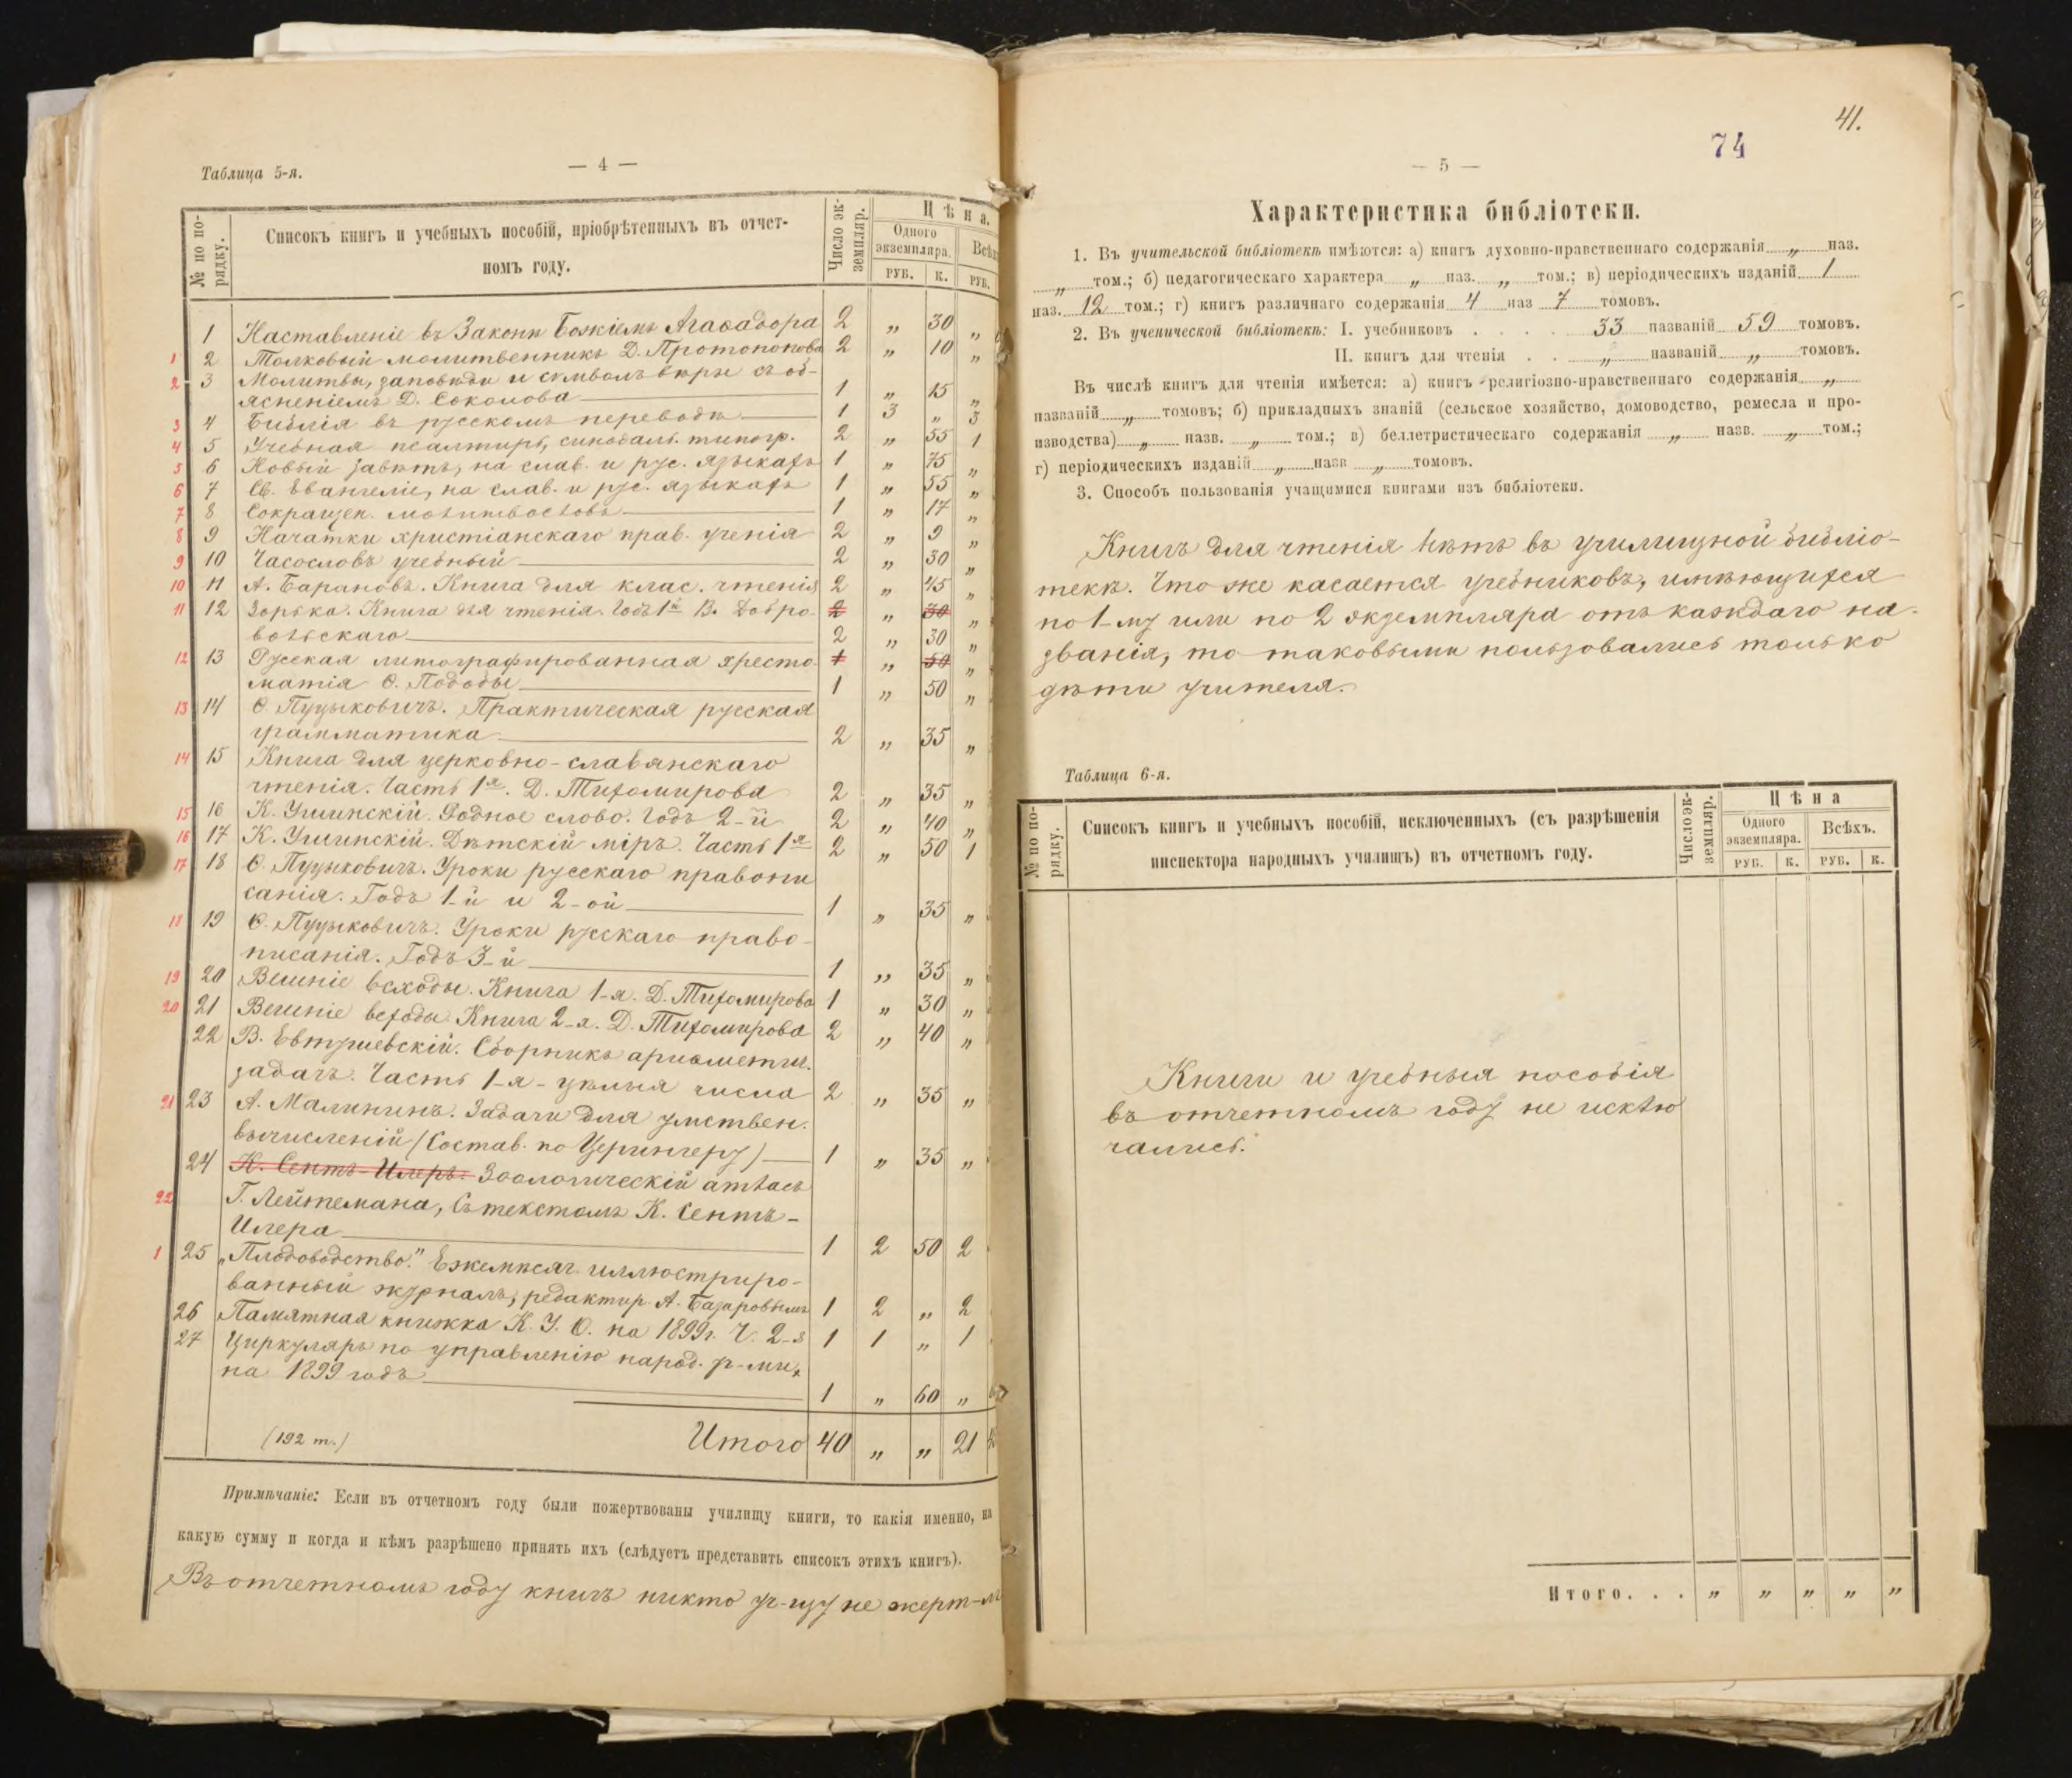 Таблица 5-я.
— 4 —
№ по порядку.
Списокъ книгъ и учебныхъ пособій, пріобрѣтенныхъ въ отчет-
номъ году.
Число экземпляр.
Цѣна.
Одного экземпляра.
Всѣхъ
РУБ. К. РУБ.
1 Наставленіе въ Законѣ Божіемъ Агаѳадора 2 „ 30 „
1 2 Толковый молитвенникъ Д. Протопопова 2 „ 10 „
2 3 Молитвы, заповѣди и символъ вѣры съ об-
ясненіемъ Д. Соколова 1 „ 15 „
3 4 Библія въ русскомъ переводѣ 1 3 „ 3
4 5 Учебная псалтирь, синодальн. типогр. 2 „ 55 1
5 6 Новый завѣтъ, на слав. и рус. языкахъ 1 „ 75 „
6 7 Св. Евангеліе, на слав. и рус. языкахъ 1 „ 55 „
7 8 Сокращен. молитвословъ 1 „ 17 „
8 9 Начатки христіанскаго прав. ученія 2 „ 9 „
9 10 Часословъ учебный 2 „ 30 „
10 11 А. Барановъ. Книга для клас. чтенія 2 „ 45 „
11 12 Зорька. Книга для чтенія. Годъ 1й В. Добро- 2 „ 30 „
вольскаго 2 „ 30 „
12 13 Русская литографированная христо- 1 „ 50 „
матія Ѳ. Пободы 1 „ 50 „
13 14 Ѳ. Пуцыковичъ. Практическая русская
грамматика 2 „ 35 „
14 15 Книга для церковно-славянскаго
чтенія. Часть 1я. Д. Тихомирова 2 „ 35 „
15 16 К. Ушинскій. Родное слово. Годъ 2-й 2 „ 40 „
16 17 К. Ушинскій. Дѣтскій міръ. Часть 1я 2 „ 50 1
17 18 Ѳ. Пуцыковичъ. Уроки русскаго правопи
санія. Годъ 1-й и 2-ой 1 „ 35 „
18 19 Ѳ. Пуцыковичъ. Уроки русскаго право-
писанія. Годъ 3-й 1 „ 35 „
19 20 Вешніе всходы. Книга 1-я. Д. Тихомирова 1 „ 30 „
20 21 Вешніе всходы. Книга 2-я. Д. Тихомирова 2 „ 40 „
22 В. Евтушевскій. Сборникъ ариѳметич.
задачъ. Часть 1-я - цѣлыя числа 2 „ 35 „
21 23 А. Малининъ. Задачи для умствен.
вычисленій (Состав. по Церингеру) 1 „ 35 „
24 К. Сентъ-Илеръ. Зоологическій атласъ
22 Г. Лейтемана, съ текстомъ К. Сентъ-
Илера 1 2 50 2
1 25 „Плодоводство." Ежемѣсяч. иллюстриро-
ванный журналъ, редактир. А. Базаровымъ 1 2 „ 2
26 Памятная книжка К. У. О. на 1899г. Ч. 2-я 1 1 „ 1
27 Циркуляръ по управленію народ. уч-ми,
на 1899 годъ 1 „ 60 „
(192 т.) Итого 40 „ „ 21
Примѣчаніе: Если въ отчетномъ году были пожертвованы училищу книги, то какія именно, на
какую сумму и когда и кѣмъ разрѣшено принять ихъ (слѣдуетъ представить списокъ этихъ книгъ).
Въ отчетномъ году книгъ никто уч-щу не жерт-лъ
41.
74
— 5 —
Характеристика библіотеки.
1. Въ учительской библіотекѣ имѣются: а) книгъ духовно-нравственнаго содержанія „ наз.
„ том.; б) педагогическаго характера „ наз. „ том.; в) періодическихъ изданій 1
наз. 12 том.; г) книгъ различнаго содержанія 4 наз 7 томовъ.
2. Въ ученической библіотекѣ: I. учебниковъ . . . . 33 названій 59 томовъ.
II. книгъ для чтенія . . „ названій „ томовъ.
Въ числѣ книгъ для чтенія имѣется: а) книгъ религіозно-нравственнаго содержанія „
названій „ томовъ; б) прикладныхъ знаній (сельское хозяйство, домоводство, ремесла и про-
изводства) „ назв. „ том.; в) беллетристическаго содержанія „ назв. „ том.;
г) періодическихъ изданій „ назв „ томовъ.
3. Способъ пользованія учащимися книгами изъ библіотеки.
Книгъ для чтенія нѣтъ въ училищной библіо-
текѣ. Что же касается учебниковъ, имѣющихся
по 1-му или по 2 экземпляра отъ каждаго на-
званія, то таковыми пользовались только
дѣти учителя.
Таблица 6-я.
№ по порядку.
Списокъ книгъ и учебныхъ пособій, исключенныхъ (съ разрѣшенія
инспектора народныхъ училищъ) въ отчетномъ году.
Число экземпляр.
Цѣна
Одного экземпляра.
Всѣхъ.
РУБ. К. РУБ. К.
Книги и учебныя пособія
въ отчетномъ году не исклю
чались.
Итого. . . „ „ „ „ „